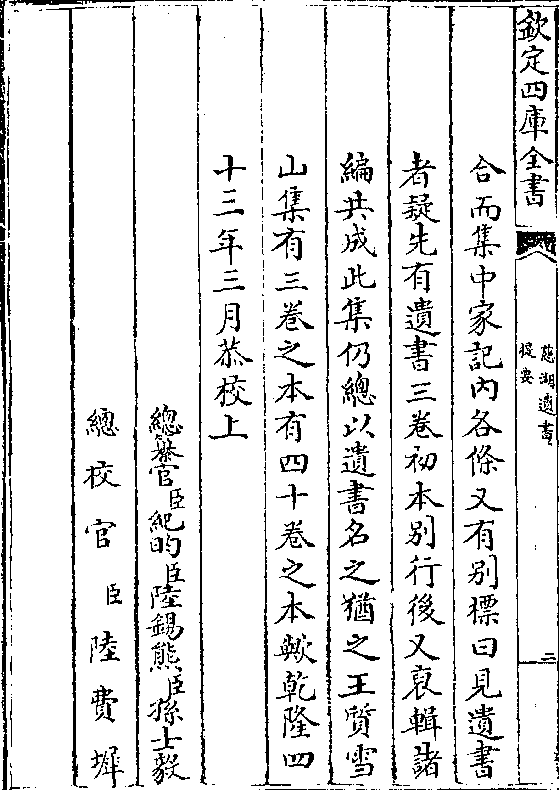 欽定四庫全書
慈湖遺書
提要
三
合而集中家記內各條又有別標曰見遺書
者疑先有遺書三卷初本別行後又裒輯諸
編共成此集仍總以遺書名之猶之王質雪
山集有三卷之本有四十卷之本歟乾隆四
十三年三月恭校上
總纂官臣紀昀臣陸錫熊臣孫士毅
總校官臣陸費墀